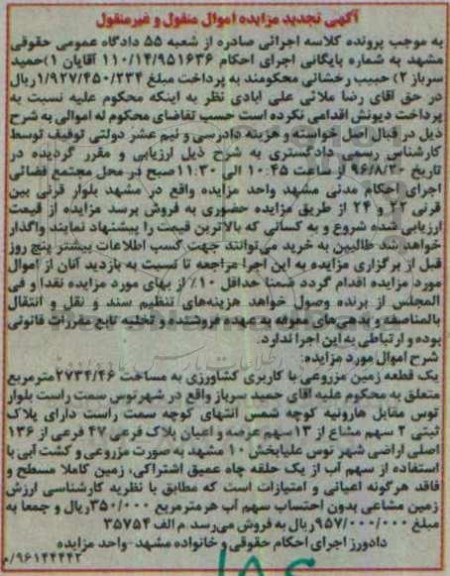 آگهی تجدید مزایده اموال منقول و غیرمنقول
به موجب پرونده کلاسه اجرائی صادره از شعبه ۵۵ دادگاه عمومی حقوقی
مشهد به شماره بایگانی اجرای احکام ۱۱۰/۱۴/۹۵۱۶۳۶ آقایان ۱)حمید
سرباز ۲) حبیب رخشانی محکومند به پرداخت مبلغ ۱/۹۲۷/۴۵۰/۲۳۴ریال
در حق آقای رضا ملائی علی ابادی نظر به اینکه محکوم علیه نسبت به
پرداخت دیونش اقدامی نکرده است حسب تقاضای محکوم له اموالی به شرح
ذیل در قبال اصل خواسته و هزینه دادرسی و نیم عشر دولتی توقیف توسط
کارشناس رسمی دادگستری به شرح ذیل ارزیابی و مقرر گردیده در
تاریخ ۹۶/۸/۳۰ از ساعت ۱۰:۴۵ الی ۱۱:۳۰صبح در محل مجتمع قضائی
اجرای احکام مدنی مشهد واحد مزایده واقع در مشهد بلوار قرنی بین
قرنی ۲۲ و ۲۴ از طریق مزایده حضوری به فروش برسد مزایده از قیمت
ارزیابی شده شروع و به کسانی که بالاترین قیمت را پیشنهاد نمایند واگذار
خواهد شد طالبین به خرید می‌توانند جهت کسب اطلاعات بیشتر پنج روز
قبل از برگزاری مزایده به این اجرا مراجعه تا نسبت به بازدید آنان از اموال
مورد مزایده اقدام گردد ضمنا حداقل ۱۰٪ از بهای مورد مزایده نقدا و فی
المجلس از برنده وصول خواهد هزینه‌های تنظیم سند و نقل و انتقال
بالمناصفه و بدهی‌های معوقه به عهده فروشنده و تخلیه تابع مقررات قانونی
بوده و ارتباطی به این اجرا ندارد.
شرح اموال مورد مزایده:
یک قطعه زمین مزروعی با کاربری کشاورزی به مساحت ۲۷۳۴/۴۶مترمربع
متعلق به محکوم علیه آقای حمید سرباز واقع در شهر توس سمت راست بلوار
توس مقابل هارونیه کوچه شمس انتهای کوچه سمت راست دارای پلاک
ثبتی ۲ سهم مشاع از ۱۳ سهم عرصه و اعیان پلاک فرعی ۴۷ فرعی از ۱۳۶
اصلی اراضی شهر توس علیا بخش ۱۰ مشهد به صورت مزروعی و کشت آبی با
استفاده از سهم آب از یک حلقه چاه عمیق اشتراکی، زمین کاملا مسطح و
فاقد هرگونه اعیانی و امتیازات است که مطابق با نظریه کارشناسی ارزش
زمین مشاعی بدون احتساب سهم آب هر مترمربع ۳۵۰/۰۰۰ریال و جمعا به
مبلغ ۹۵۷/۰۰۰/۰۰۰ریال به فروش می‌رسد. م الف ۳۵۷۵۴
دادورز اجرای احکام حقوقی و خانواده مشهد -واحد مزایده
۹۶۱۴۴۴۴۳/م